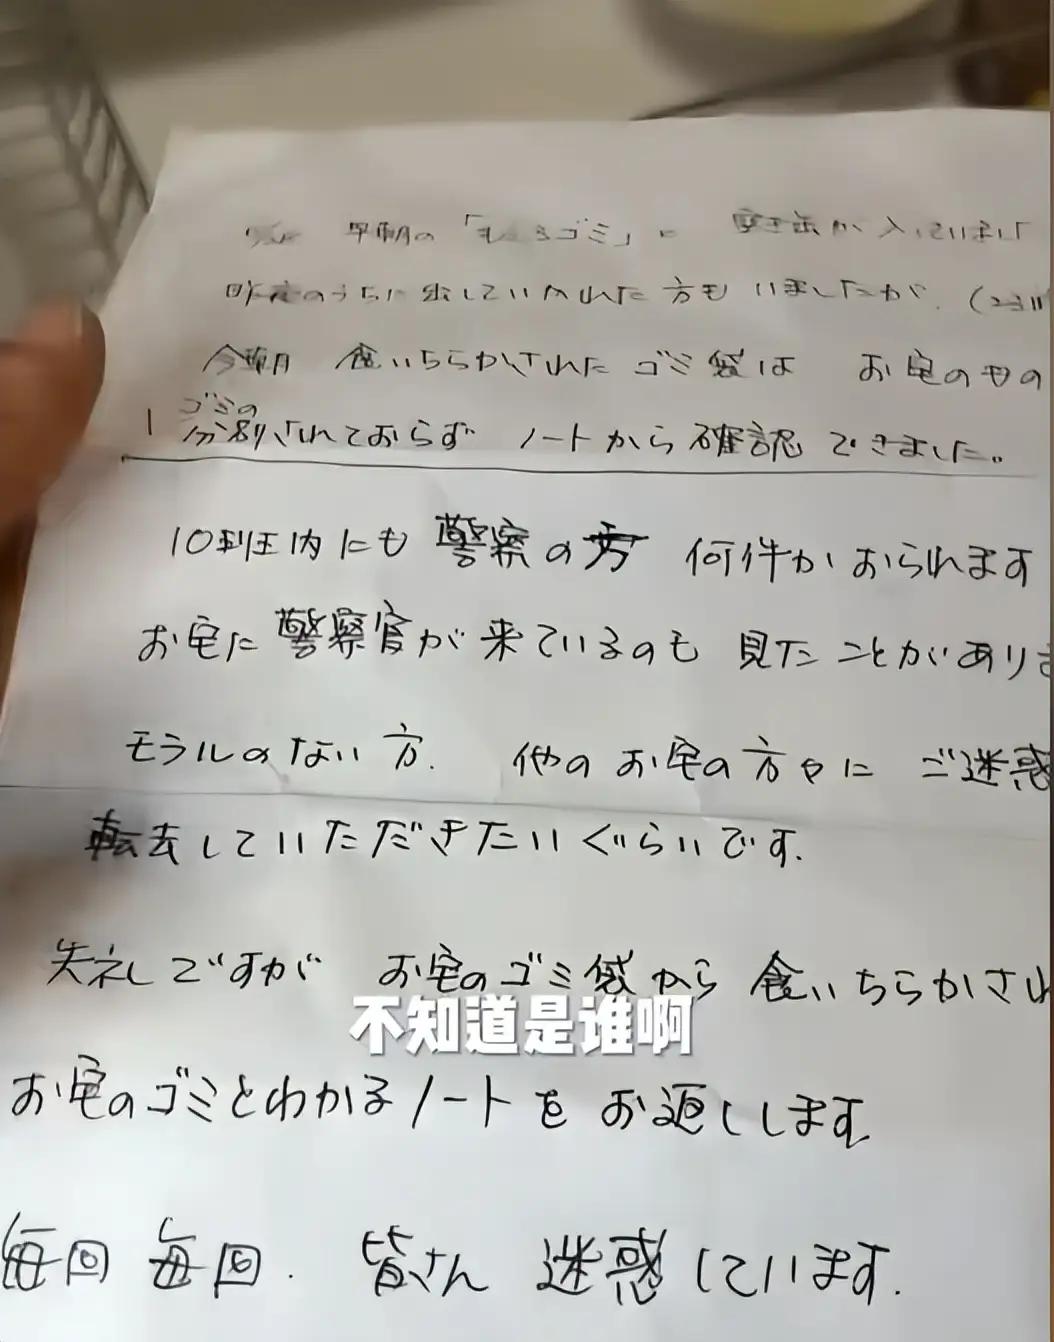 早朝の「もえるゴミ」に 空き缶が入っていまし
昨夜のうちに出していかれた方もいましたが、
今朝 食いちらかされた ゴミ袋は お宅のもの
ゴミの
分別されておらず ノートから確認できました。
10班内にも 警察の方 何件かおられます
お宅に警察官が来ているのも 見たことがあり
モラルのない方. 他のお宅の方々に ご迷惑
転去していただきたいぐらいです.
失礼ですが お宅のゴミ袋から 食いちらかされ
不知道是谁啊
お宅のゴミとわかるノートを お返しします
毎回 毎回. 皆さん 迷惑しています.